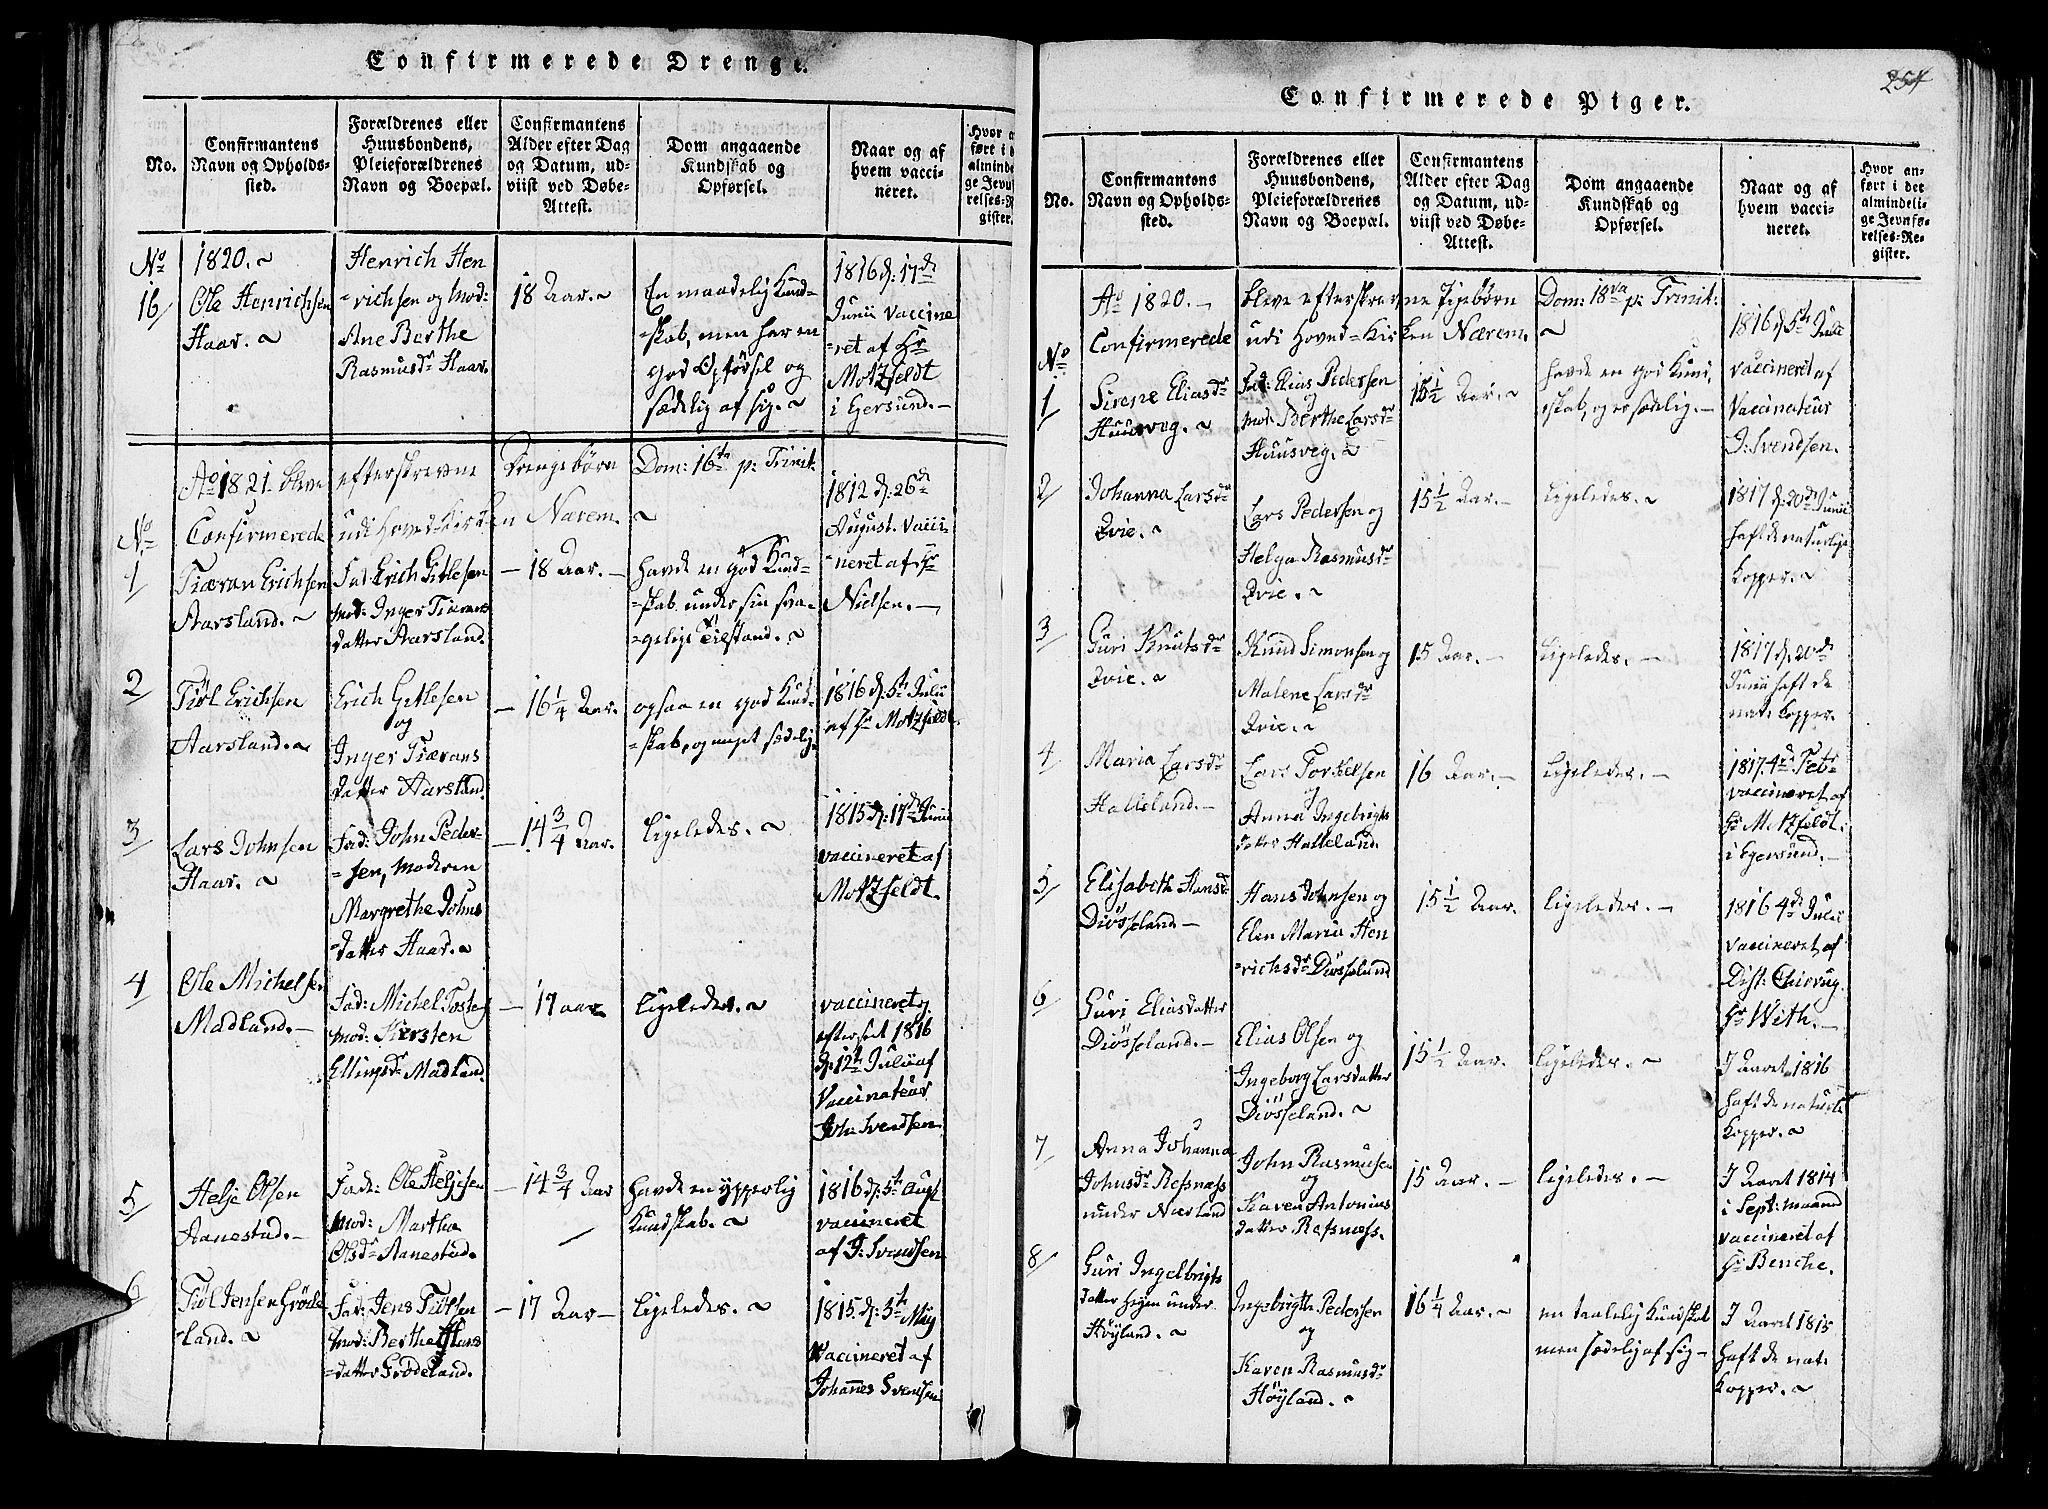 Confirmerede Drenge.
No.
Confirmantens
Navn og Opholds-
sted.
Forældrenes eller
Huusbondens,
Pleieforældrenes
Navn og Boepæl.
Confirmantens
Alder efter Dag
og Datum, ud-
viist ved Døbe-
Attest.
Dom angaaende
Kundskab og
Opførsel.
Naar og af
hvem vacci-
neret.
Hvor a
ført i d
almind
ge Jevnf
relses-R
gister.
No
16
1820.
Ole Henrichsen
Haar.
Henrich Hen
richsen og Mod:
Ane Berthe
Rasmusdr Haar.
18 Aar.
En maadelig Kund-
skab, men har en
god Opførsel og
sædelig af sig.
1816 d: 17de
Junii vaccine
ret af Hr
Motzfeldt
i Egersund.
Ao 1821 bleve efterskrevne Drengebørn Dom: 16de p: Trinit:
Confirmerede udi Hoved-Kirken Nærem.
No
1
Tiæran Erichsen
Aarsland.
Fad: Erich Gitlesen
Mod: Inger Tiærans
datter Aarsland.
18 Aar.
havde en god Kund-
skab under sin sva-
gelige Tilstand.
1812 d: 26de
August. vacci-
neret af Hr
Nielsen.
2
Tiøl Erichsen
Aarsland.
Erich Gitlesen
og
Inger Tiærans
datter Aarsland.
16 1/4 Aar.
ogsaa en god Kund-
skab, og meget sædelig.
1816 d: 5te Julii
af Hr Motzfeldt
3
Lars Johnsen
Haar.
Fad: John Peder-
sen, Moderen
Margrethe Johns
datter Haar.
14 3/4 Aar.
ligeledes.
1815 d: 17de Junii
vaccineret af
Motzfeldt.
4
Ole Michelsen
Madland.
Fad: Michel Tostens
Mod: Kirsten
Ellingsdr Madland.
17 aar
ligeledes.
vaccineret
efter set 1816
d: 12te Julii af
Vaccinateur
Joh: Svendsen
5
Helje Olsen
Aanestad.
Fader: Ole Heljesen
Mod: Martha
Olsdr Aanestad.
14 3/4 Aar
havde en ypperlig
Kundskab.
1816 d: 5te Augt
vaccineret
af J: Svendsen
6
Tiøl Jensen Grøde
land.
Fad: Jens Tiølsen
Mod: Berthe
datter Grødeland.
17 Aar
ligeledes.
1815 d: 5te Maij
Vaccineret af
Johannes Svensen
254
Confirmerede Piger.
No.
Confirmantens
Navn og Opholds-
sted.
Forældrenes eller
Huusbondens,
Pleieforældrenes
Navn og Boepæl.
Confirmantens
Alder efter Dag
og Datum, ud-
viist ved Døbe-
Attest.
Dom angaaende
Kundskab og
Opførsel.
Naar og af
hvem vacci-
neret.
Hvor an-
ført i det
almindeli-
ge Jevnfø-
relses-Re-
gister.
Ao 1820. bleve efterskrevne Pigebørn Dom: 18va p: Trinit:
Confirmerede udi Hoved-Kirken Nærem.
No
1
Sirene Eliasdr
Huusveg.
Fad: Elias Pedersen
og
Mod: Berthe Larsdr
Huusveg.
15 1/2 Aar.
havde en god Kund
skab, og er sædelig.
1816 d: 5te Julii
vaccineret af
Vaccinateur
J: Svendsen.
2
Johanna Larsdr
Qvie.
Lars Pedersen og
Helga Rasmusdr
Qvie.
15 1/2 Aar.
Ligeledes.
1817 d: 20de Junii
haft de naturlige
Kopper.
3
Guri Knutsdr
Qvie.
Knud Simonsen og
Malene Larsdr
Qvie.
15 Aar.
Ligeledes.
1817 d: 20de
Junii haft de
nat: Kopper.
4
Maria Larsdr
Halleland.
Lars Torkelsen
og
Anna Ingebrigts
datter Halleland.
16 Aar.
Ligeledes.
1817. 4de Febr
vaccineret af
Hr Motzfeldt.
i Egersund.
5
Elisabeth Hansdr
Diösseland
Hans Johnsen og
Elen Maria Hen
richsdr Diösseland
15 1/2 Aar.
ligeledes.
1816 4de Julii
vaccineret af
Dist: Chirurg.
Hr With.
6
Guri Eliasdatter
Diösseland.
Elias Olsen og
Ingeborg Larsdatter
Diösseland.
15 1/2 Aar.
ligeledes.
I Aaret 1816
haft de naturl:
Kopper.
7
Anna Johanna
Johnsdr Refsnæss
under Nærland
John Rasmusen
og
Karen Antonius
datter Refsnæss.
15 Aar.
ligeledes.
I Aaret 1814
i Sept: maaned
vaccineret af
Hr Benche.
8
Guri Ingelbrigts
datter Heyen under
Höyland.
Ingebrigth Pedersen
og
Karen Rasmusdr
Höyland.
16 1/4 Aar.
en taalelig Kundskab
men sædelig af sig
I Aaret 1815
haft de nat:
Kopper.